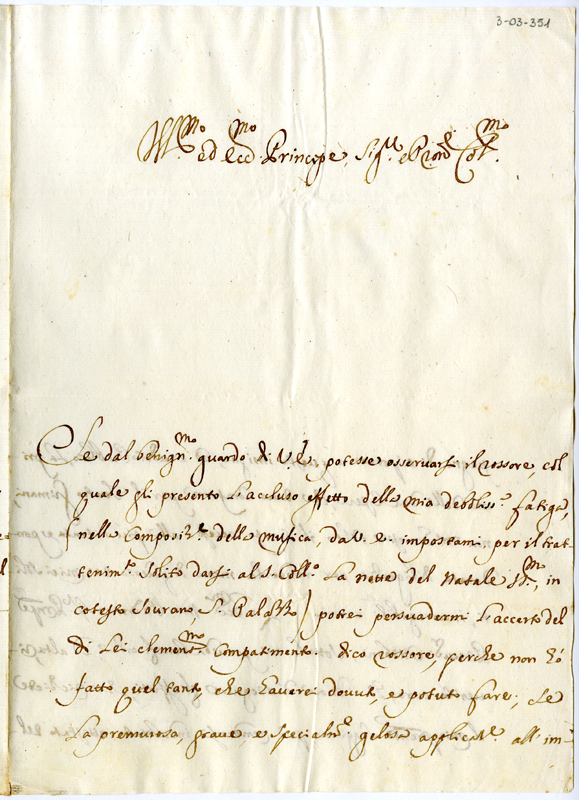 3-03-351
Ill.mo ed Ecc.mo Principe, Sig.re e Pron.e Col.mo
Se dal benign.mo guardo di V.E. potesse osservarsi il rossore, col
quale gli presento l'acluso effetto della mia debboliss.a fatiga,
(nella Composiz.e della musica, da V.E. impostami, per il trat-
tenim.to solito darsi al S. Coll.o la notte del Natale SS.mo, in
cotesto Sovrano, S. Palazzo) potrei persuadermi l'accerto del
di Lei clement.mo Compatimento. dico rossore, perche non hò
fatto quel tanto, che haverei dovuto, e potuto fare, se
la premurosa, grave, e specialm.te gelosa applicat.e all'im-